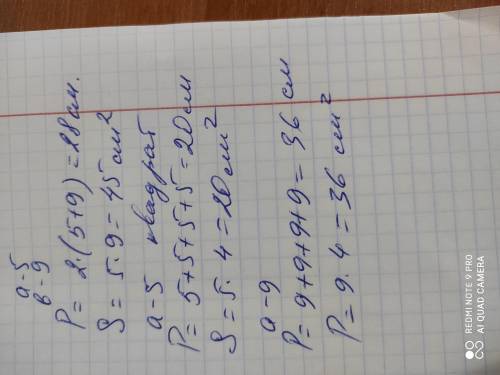 а-5
в-9
P= 2·(5+9)=28см.
S= 5·9=45см²
а-5 квадрат
P=5+5+5+5=20см
S=5·4=20см²
а-9
P=9+9+9+9=36 см
P=9·4=36 см²
REDMI NOTE 9 PRO
AI QUAD CAMERA